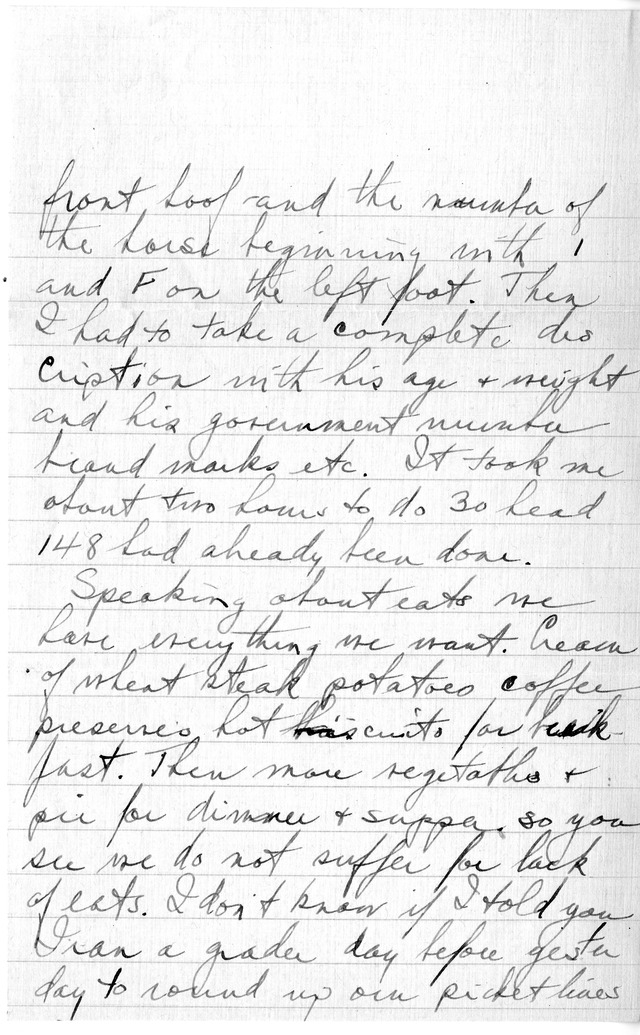 front hoof and the number of
the horse beginning with 1
and F on the left foot. Then
I had to take a complete des
cription with his age + weight
and his government number
brand marks etc. It took me
about two hours to do 30 head
148 had already been done.
Speaking about eats we
have everything we want. Cream
of wheat steak potatoes coffee
preserves hot biscuits for break-
fast. Then more vegetables +
pie for dinner + supper. so you
see we do not suffer for lack
of eats. I don't know if I told you
I ran a grader day before yester
day to round up our picket lines